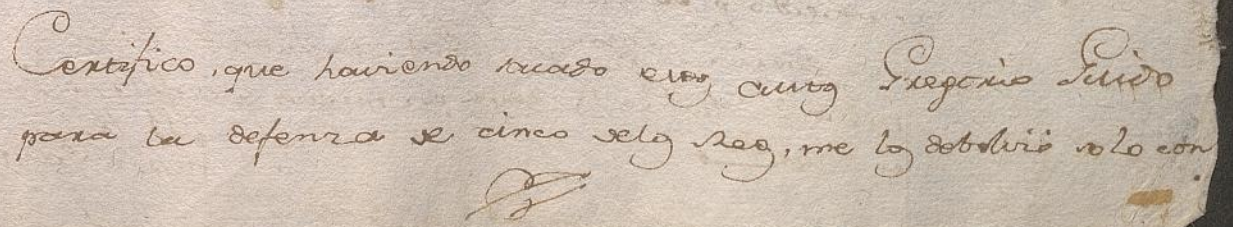 Certifico, que haviendo sacado estos autos Gregorio Guido
para la defenza de cinco delos Reos, me los debolvió solo con